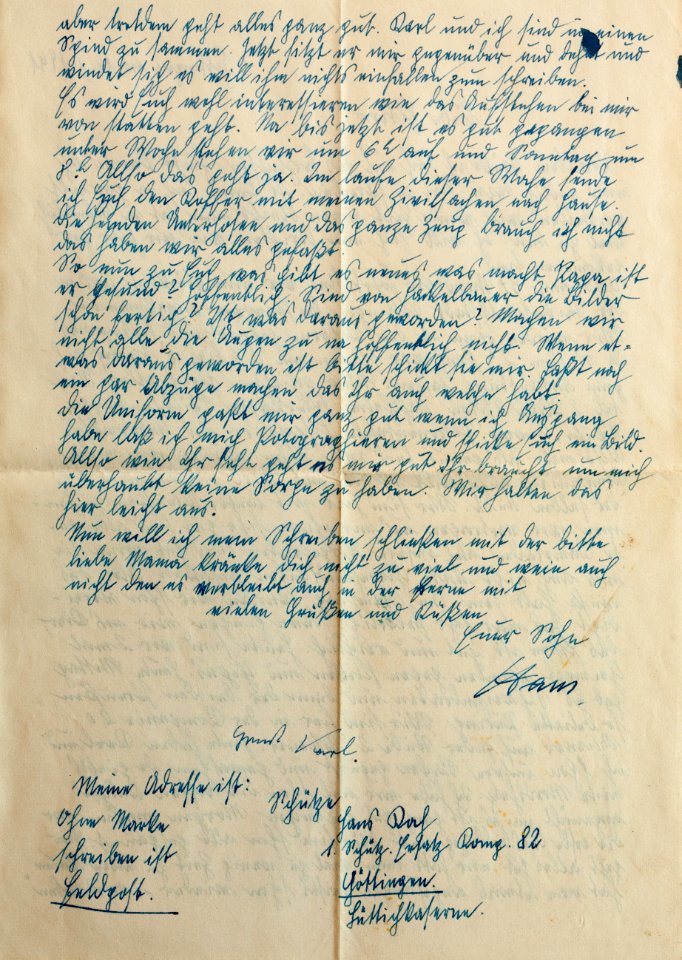 aber trotdem geht alles ganz gut. Karl und ich sind in einen
Spind zu sammen. Jetzt sitzt er mir gegenüber und und
windet sich es will ihm nichts einfallen zum schreiben.
Es wird Euch wohl interessieren wie das Aufstehen bei mir
von statten geht. Na bis jetzt ist es gut gegangen
unter Woche stehen wir um 6 h auf und Sonntag um
8 h. Allso das geht ja. Im laufe dieser Woche sende
ich Euch den Koffer mit meinen Zivilsachen nach Hause.
Die Hemden Unterhosen und das ganze Zeug brauch ich nicht
das haben wir alles gefaßt
So nun zu Euch, was gibt es neues was macht Papa ist
er Gesund? Hoffentlich, Sind von Hackelbauer die Bilder
schon fertig? Ist was daraus geworden? Machen wir
nicht alle die Augen zu na hoffentlich nicht. Wenn et-
was daraus geworden ist bitte schickt sie mir. Laßt noch
ein par Abzüge machen das Ihr auch welche habt.
Die Uniform paßt mir ganz gut wenn ich Ausgang
habe laß ich mich Potographieren und schicke Euch ein Bild.
Allso wie Ihr seht geht es mir gut Ihr braucht um mich
überhaubt keine Sorge zu haben. Wir halten das
hier leicht aus.
Nun will ich mein Schreiben schließen mit der bitte
liebe Mama kränke dich nicht zu viel und wein auch
nicht den es verbleibt auch in der Ferne mit
vielen Grüßen und Küßen
Euer Sohn
Hans
Karl.
Meine Adresse ist:
Schütze
Ohne Marke
Hans Koch
schreiben ist
1. Schütz. Ersatz. Komp. 82
Feldpost.
Göttingen.
Hüttichkaserne.